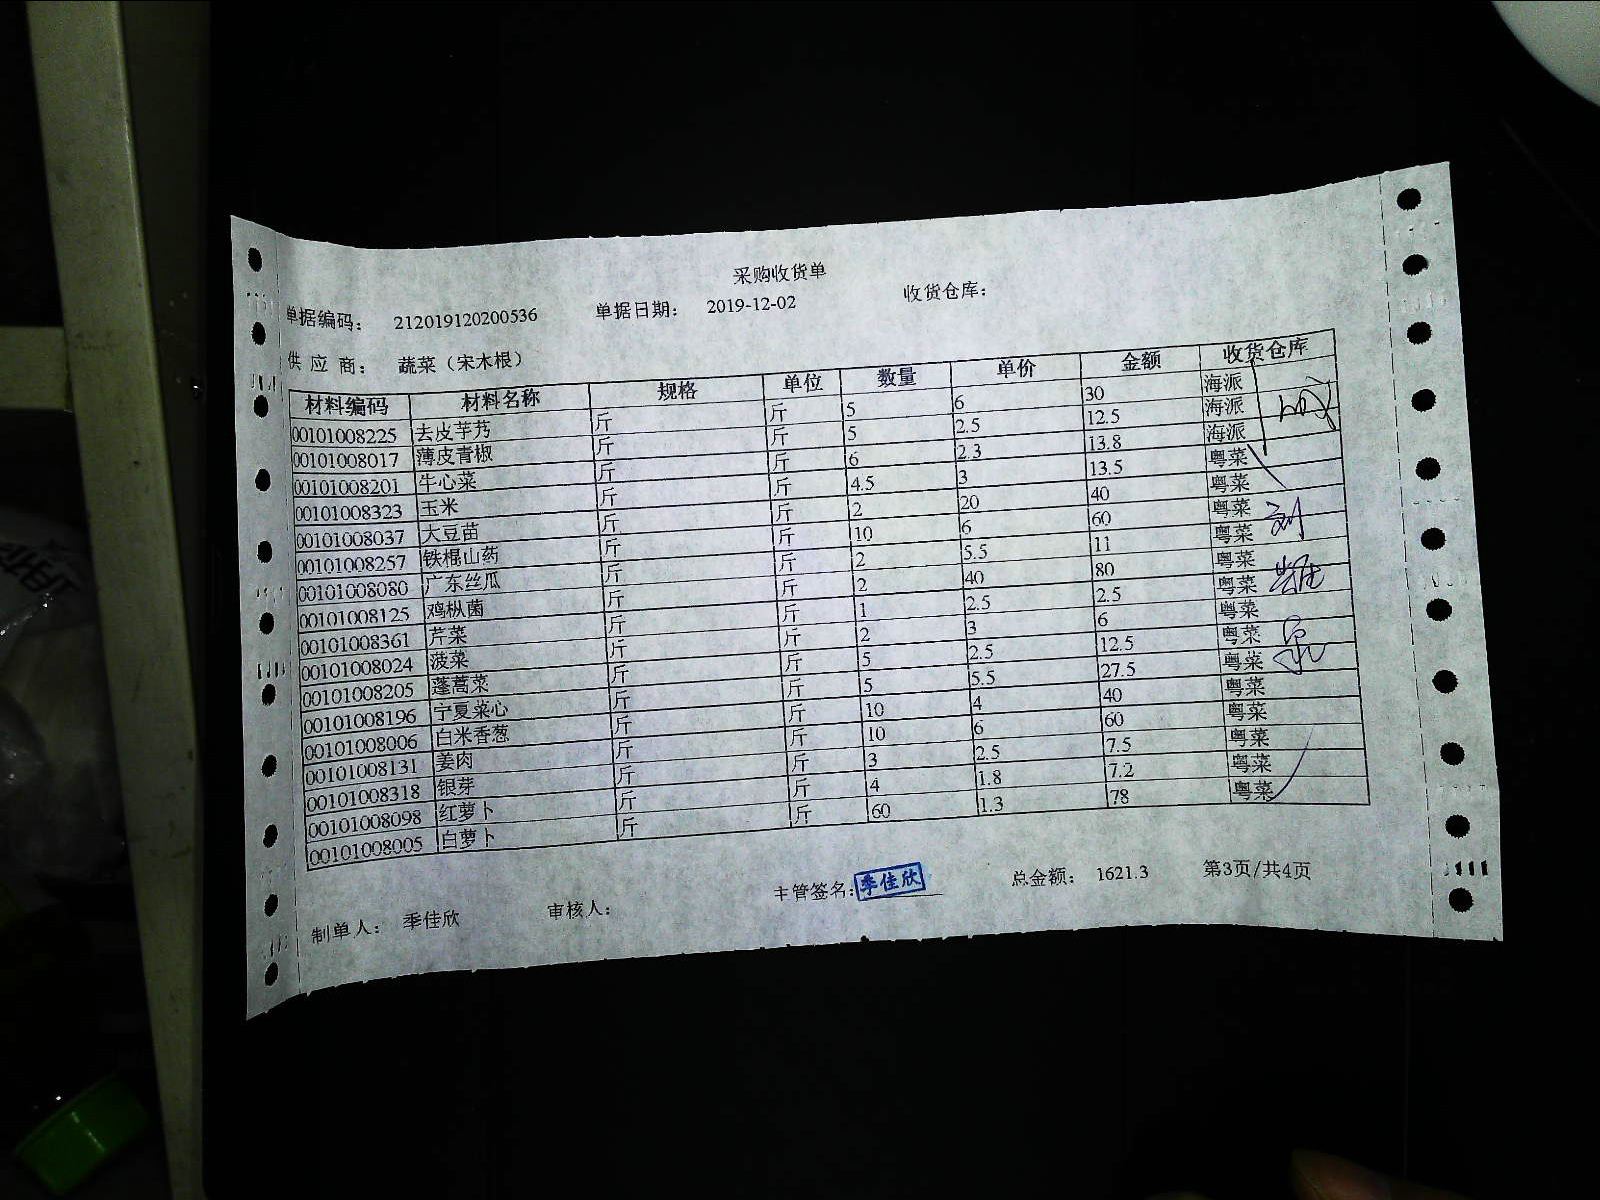 采购收货单
单据编码： 212019120200536 单据日期： 2019-12-02 收货仓库：
供应商： 蔬菜（宋木根）
材料编码 材料名称 规格 单位 数量 单价 金额 收货仓库
00101008225 去皮芋艿 斤 斤 5 6 30 海派
00101008017 薄皮青椒 斤 斤 5 2.5 12.5 海派
00101008201 牛心菜 斤 斤 6 2.3 13.8 海派
00101008323 玉米 斤 斤 4.5 3 13.5 粤菜
00101008037 大豆苗 斤 斤 2 20 40 粤菜
00101008257 铁棍山药 斤 斤 10 6 60 粤菜
00101008080 广东丝瓜 斤 斤 2 5.5 11 粤菜
00101008125 鸡枞菌 斤 斤 2 40 80 粤菜
00101008361 芹菜 斤 斤 1 2.5 2.5 粤菜
00101008024 菠菜 斤 斤 2 3 6 粤菜
00101008205 蓬蒿菜 斤 斤 5 2.5 12.5 粤菜
00101008196 宁夏菜心 斤 斤 5 5.5 27.5 粤菜
00101008006 白米香葱 斤 斤 10 4 40 粤菜
00101008131 姜肉 斤 斤 10 6 60 粤菜
00101008318 银芽 斤 斤 3 2.5 7.5 粤菜
00101008098 红萝卜 斤 斤 4 1.8 7.2 粤菜
00101008005 白萝卜 斤 斤 60 1.3 78 粤菜
制单人： 季佳欣 审核人： 主管签名：季佳欣 总金额： 1621.3 第3页/共4页